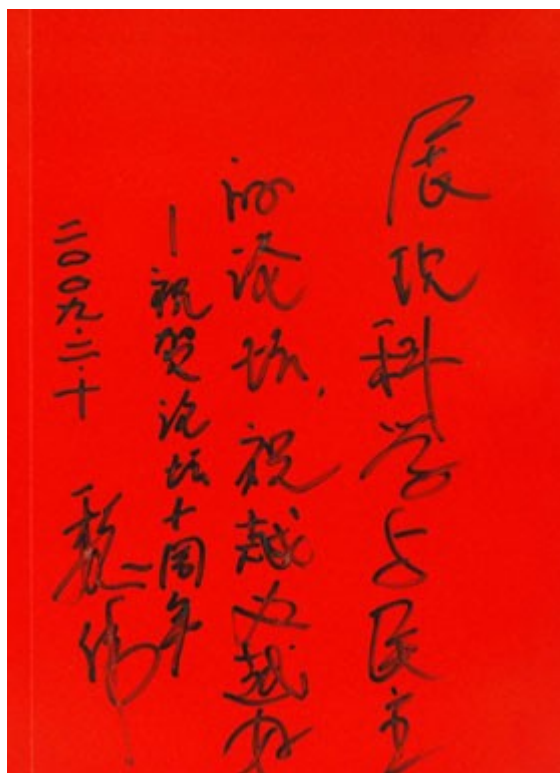 展现科学与民主
的论坛，祝越办越好
—祝贺论坛十周年
二〇〇九.二.十
魏伟